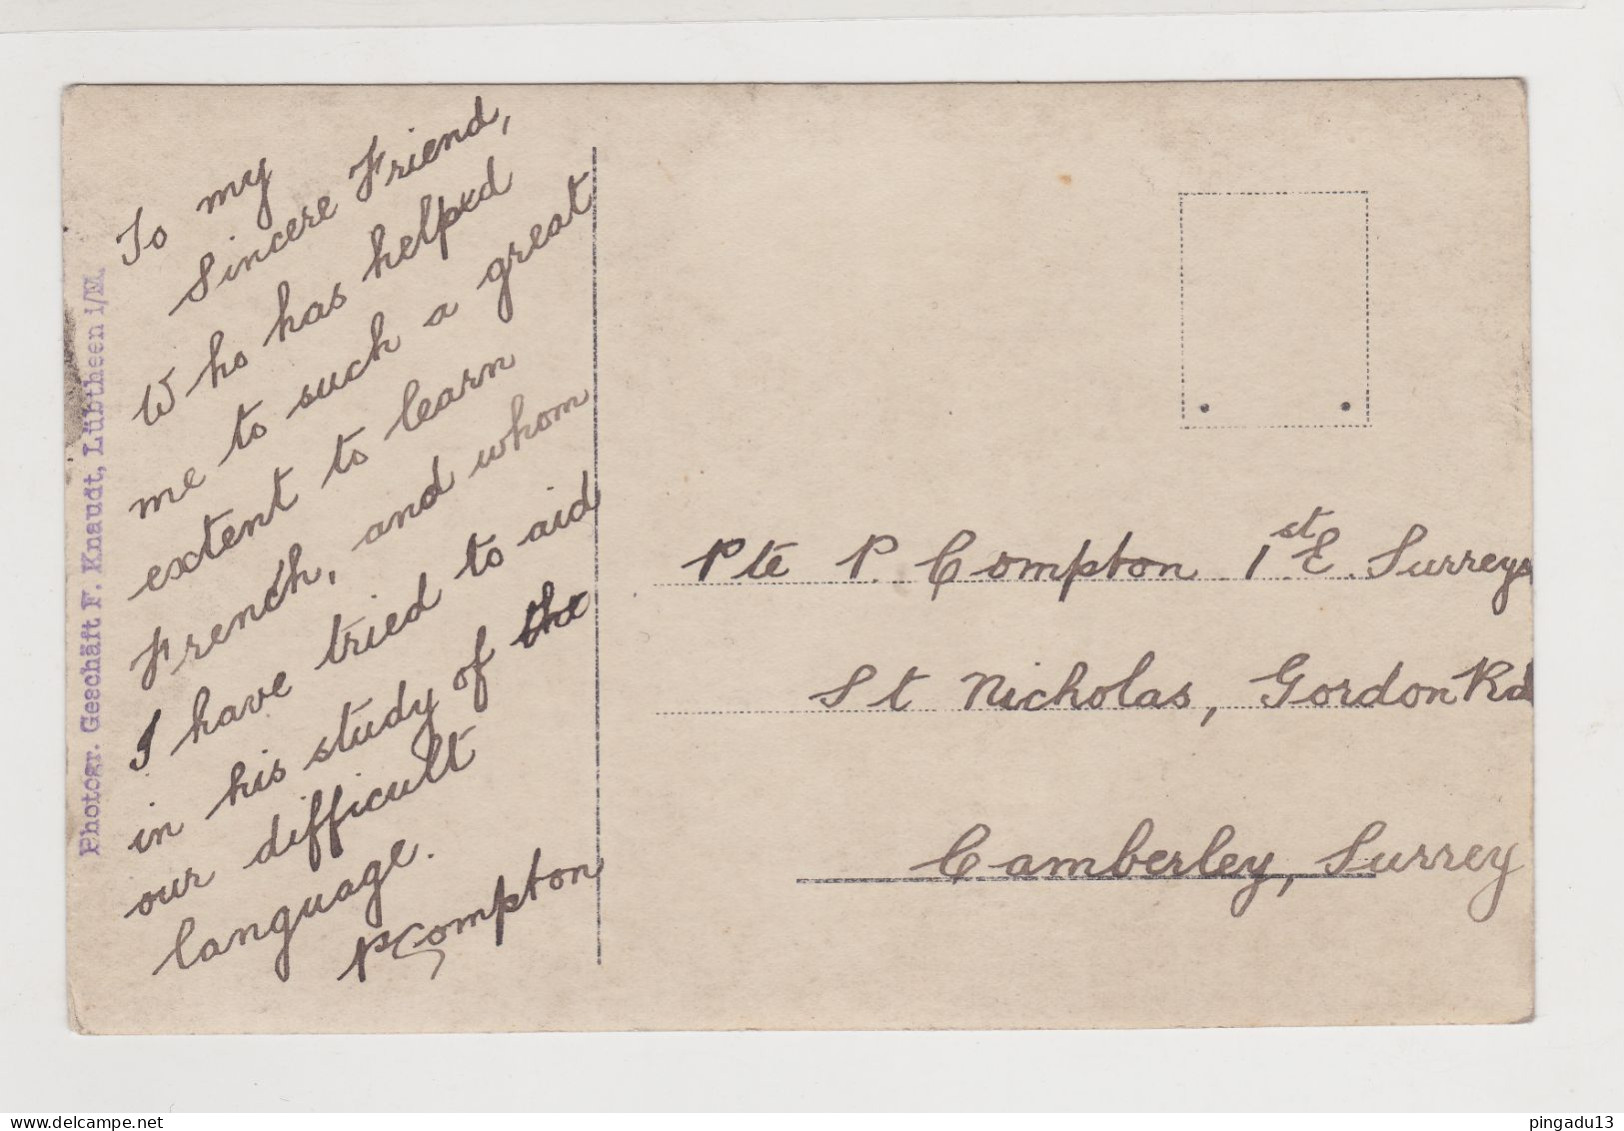 To my
Sincere Friend,
Who has helped
me to such a great
extent to learn
French, and whom
I have tried to aid
in his study of the
our difficult
language.
P Compton
Pte P. Compton 1st E. Surreys
St Nicholas, Gordon Rd
Camberley, Surrey
Photogr. Geschäft F. Knaudt, Lübtheen i/M.
www.delcampe.net
pingadu13